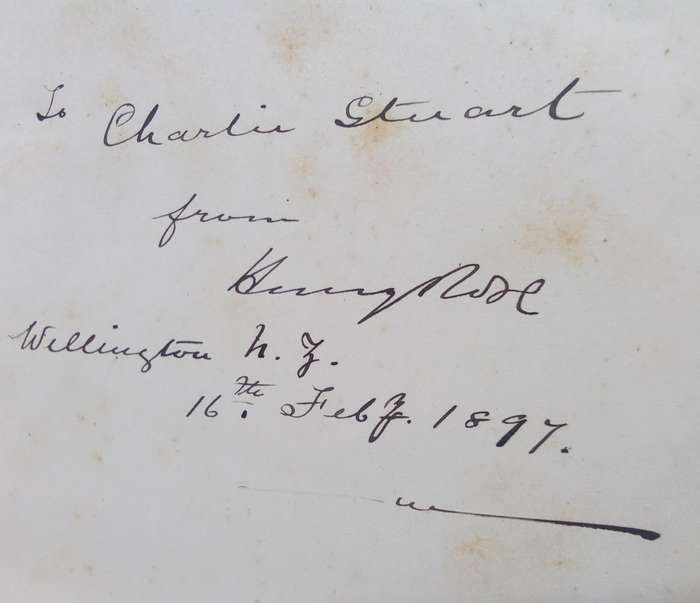 To Charlie Stuart
from
Henry Rose
Wellington N.Z.
16th. Feby. 1897.